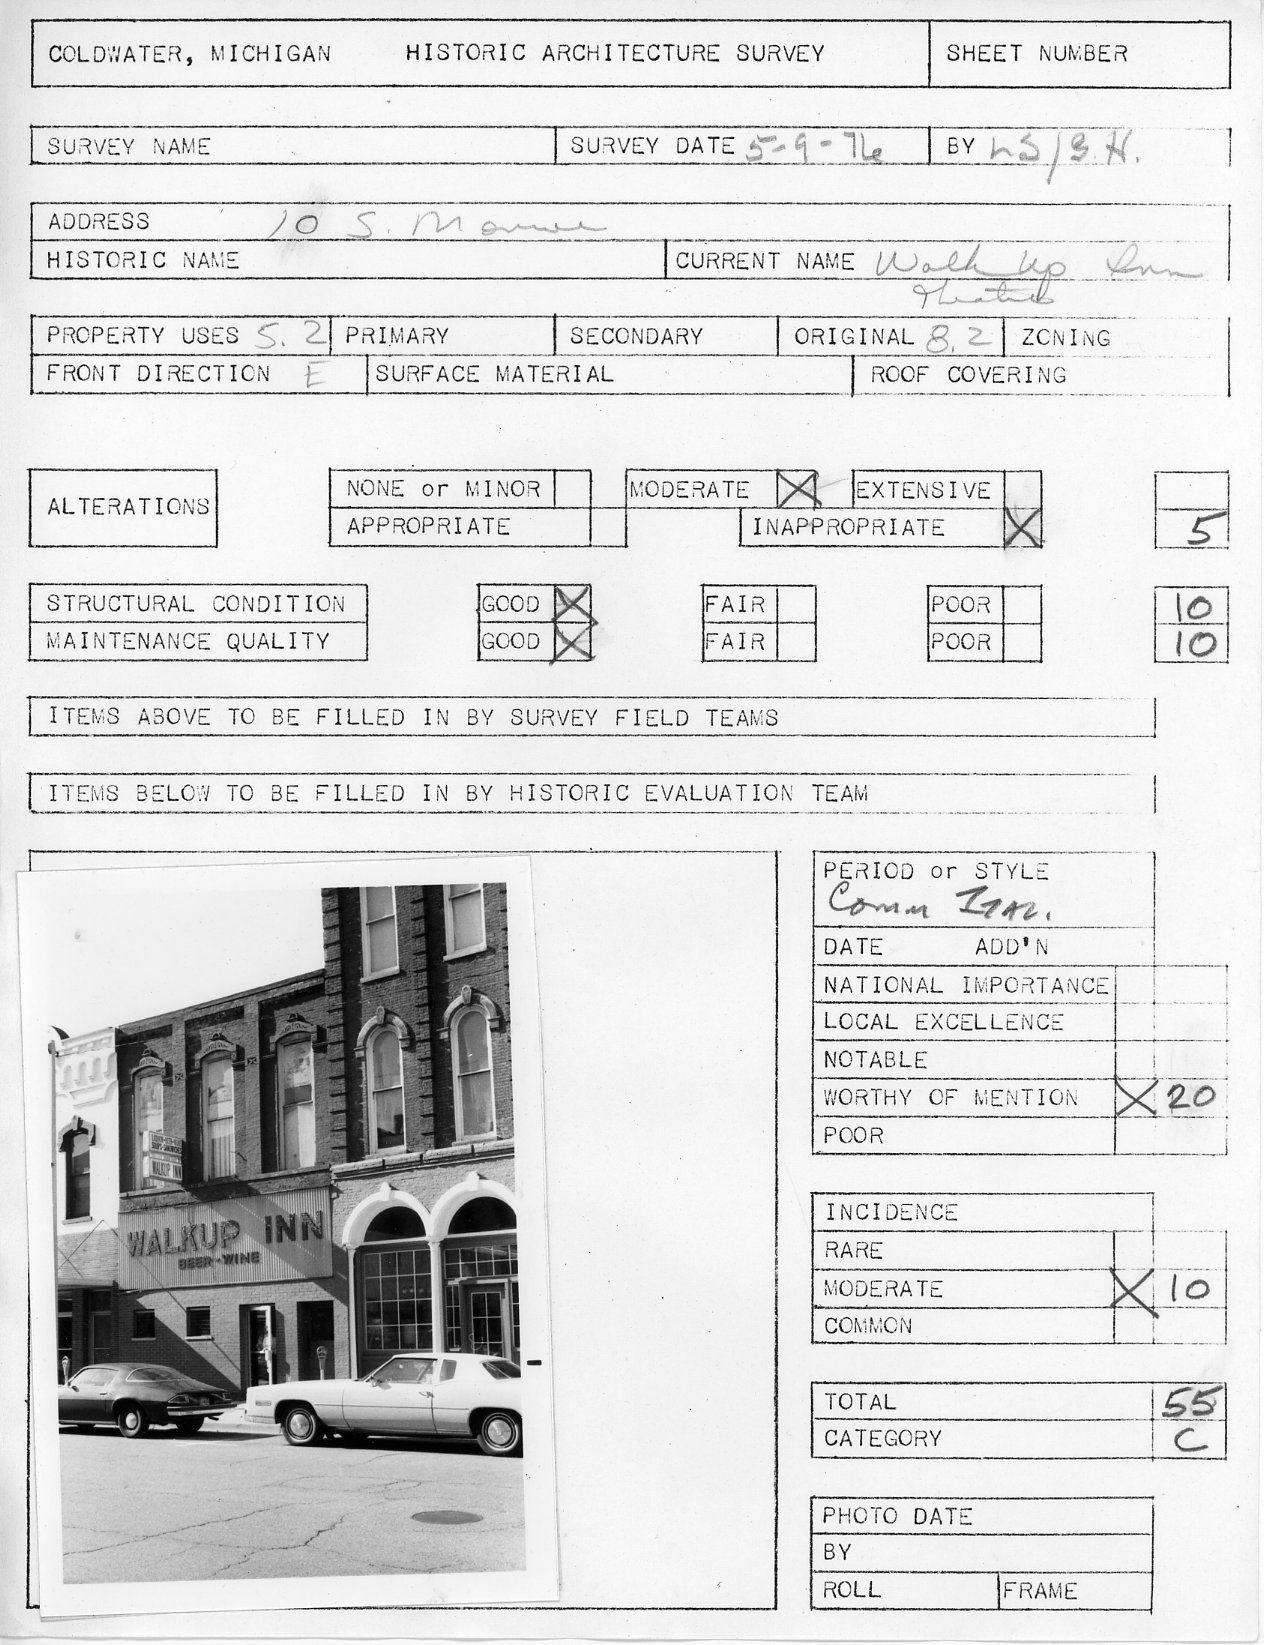 COLDWATER, MICHIGAN HISTORIC ARCHITECTURE SURVEY SHEET NUMBER
SURVEY NAME SURVEY DATE 5-9-76 BY LS/B.H.
ADDRESS 10 S. Monroe
HISTORIC NAME CURRENT NAME Walk Up Inn
PROPERTY USES 5.2 PRIMARY SECONDARY ORIGINAL 8.2 ZONING
FRONT DIRECTION E SURFACE MATERIAL ROOF COVERING
ALTERATIONS NONE or MINOR MODERATE X EXTENSIVE
APPROPRIATE INAPPROPRIATE X 5
STRUCTURAL CONDITION GOOD X FAIR POOR 10
MAINTENANCE QUALITY GOOD X FAIR POOR 10
ITEMS ABOVE TO BE FILLED IN BY SURVEY FIELD TEAMS
ITEMS BELOW TO BE FILLED IN BY HISTORIC EVALUATION TEAM
PERIOD or STYLE
Comm ITAL.
DATE ADD'N
NATIONAL IMPORTANCE
LOCAL EXCELLENCE
NOTABLE
WORTHY OF MENTION X 20
POOR
INCIDENCE
RARE
MODERATE X 10
COMMON
TOTAL 55
CATEGORY C
PHOTO DATE
BY
ROLL FRAME
WALKUP INN
WALKUP INN
BEER-WINE